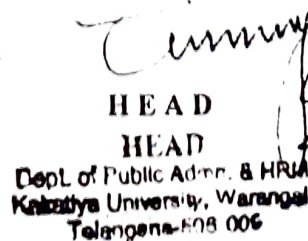 HEAD
HEAD
Dept. of Public Admn. & HRM
Kakatiya University, Warangal
Telangana-506 006